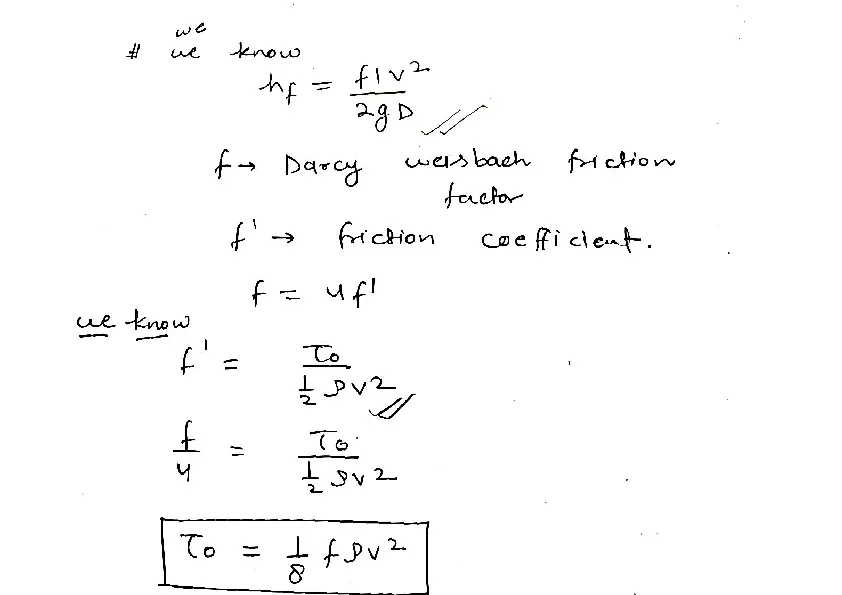 we
# we know
hf = flv²/2gD
f → Darcy weisbach friction
factor
f' → friction coefficient.
f = 4f'
we know
f' = τo / ½ ρv²
f/4 = τo / ½ ρv²
τo = 1/8 fρv²